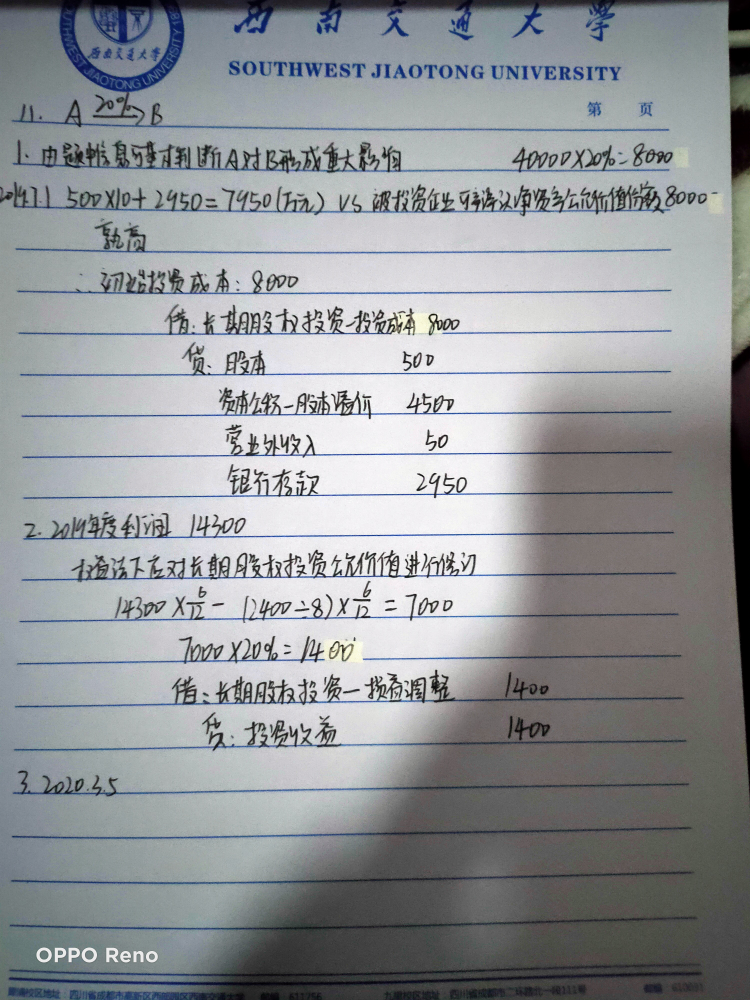 西南交通大学
SOUTHWEST JIAOTONG UNIVERSITY
西南交通大学
JIAOTONG UNIVERSITY
第 页
11. A 20%→ B
1. 由题中信息可基本判断A对B形成重大影响 40000×20%=8000
2019.7.1 500×10+2950=7950(万元) VS 被投资企业可辨认净资产公允价值份额8000
孰高
∴初始投资成本:8000
借:长期股权投资—投资成本 8000
贷:股本 500
资本公积—股本溢价 4500
营业外收入 50
银行存款 2950
2. 2019年度利润 14300
权益法下应对长期股权投资公允价值进行修订
14300×6/12-(2400÷8)×6/12=7000
7000×20%=1400
借:长期股权投资—损益调整 1400
贷:投资收益 1400
3. 2020.3.5
OPPO Reno
四川省成都市高新区西部园区西南交通大学 邮编 611756 九里校区地址:四川省成都市二环路北一段111号 邮编 610031